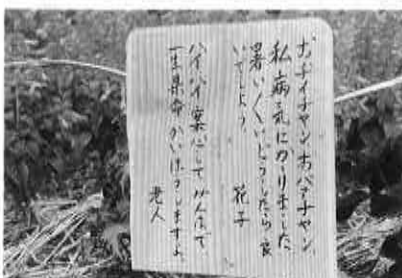 オヂイチャン、オバアチャン、
私病気にかゝりました、
暑い〱どうしたら良
いでしよう、
花子
ハイハイ楽にして みんなで
一生県命かいほうしますよ、
老人